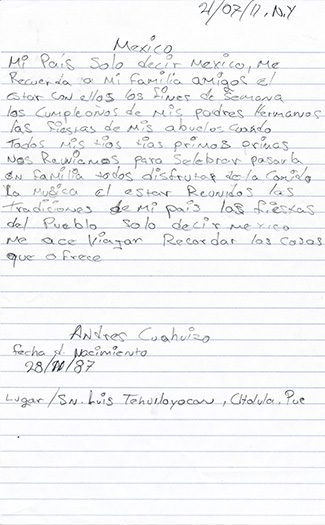 21/07/11. N.Y
Mexico
Mi País Solo decir Mexico, Me
Recuerda a Mi familia amigos el
estar con ellos los fines de Semana
los Cumpleaños de Mis padres Hermanos
las fiestas de Mis abuelos cuando
Todos Mis tios tias primos primas
Nos Reuniamos para Selebrar pasarla
en familia todos disfrutar de la Comida
la Musica el estar Reunidos las
Tradiciones de Mi pais las fiestas
del Pueblo Solo decir Mexico
Me ace Viagar Recordar las Cosas
que ofrece
Andres Cuahuizo
fecha d. Nacimiento
28/ /87
Lugar / Sn. Luis Tehuiloyocan, Cholula. Pue